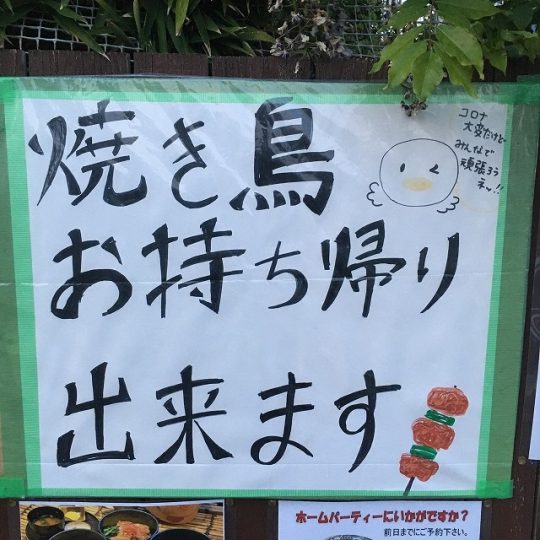 焼き鳥
お持ち帰り
出来ます
コロナ
大変だけど
みんなで
頑張ろう
ネッ!!
ホームパーティーにいかがですか?
前日までにご予約下さい。